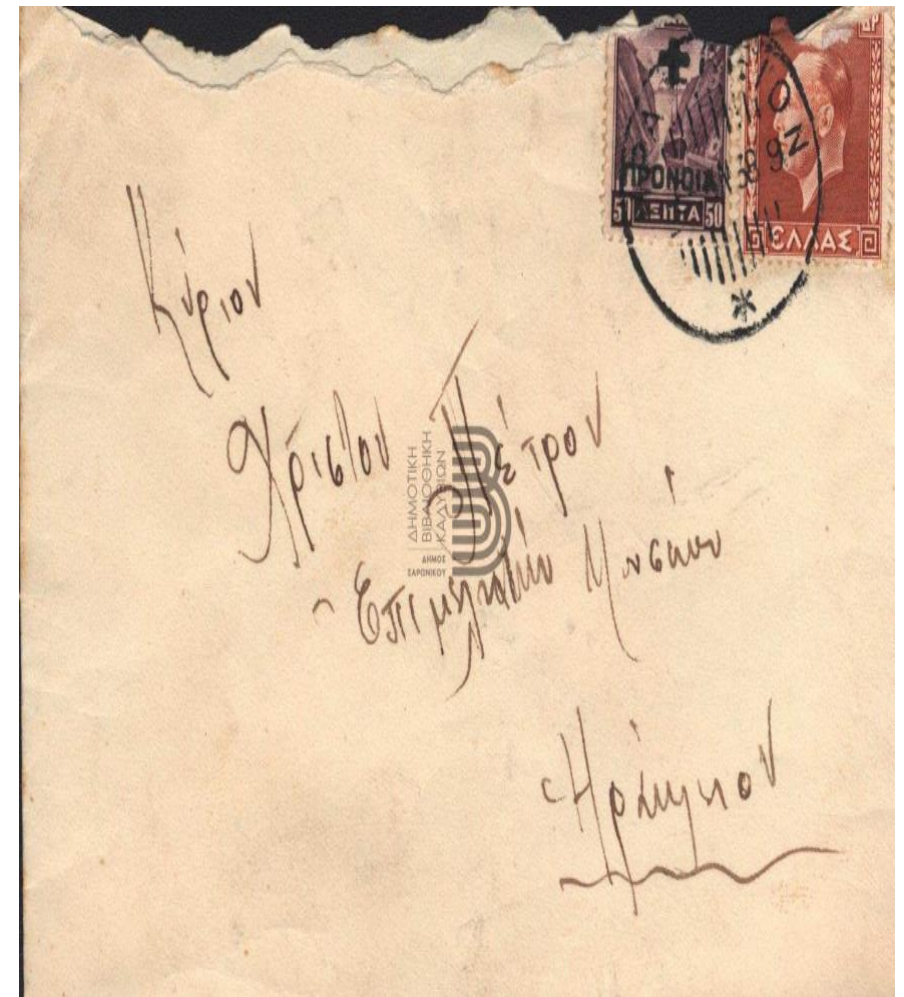 ΠΡΟΝΟΙΑ
50 ΛΕΠΤΑ 50
ΔΡ
ΕΛΛΑΣ
38 9
Κύριον
Χρίστον Πέτρον
Ἐπιμελητὴν Μουσείου
Ἡράκλειον
ΔΗΜΟΤΙΚΗ
ΒΙΒΛΙΟΘΗΚΗ
ΚΑΛΥΒΙΩΝ
ΔΗΜΟΣ
ΣΑΡΩΝΙΚΟΥ